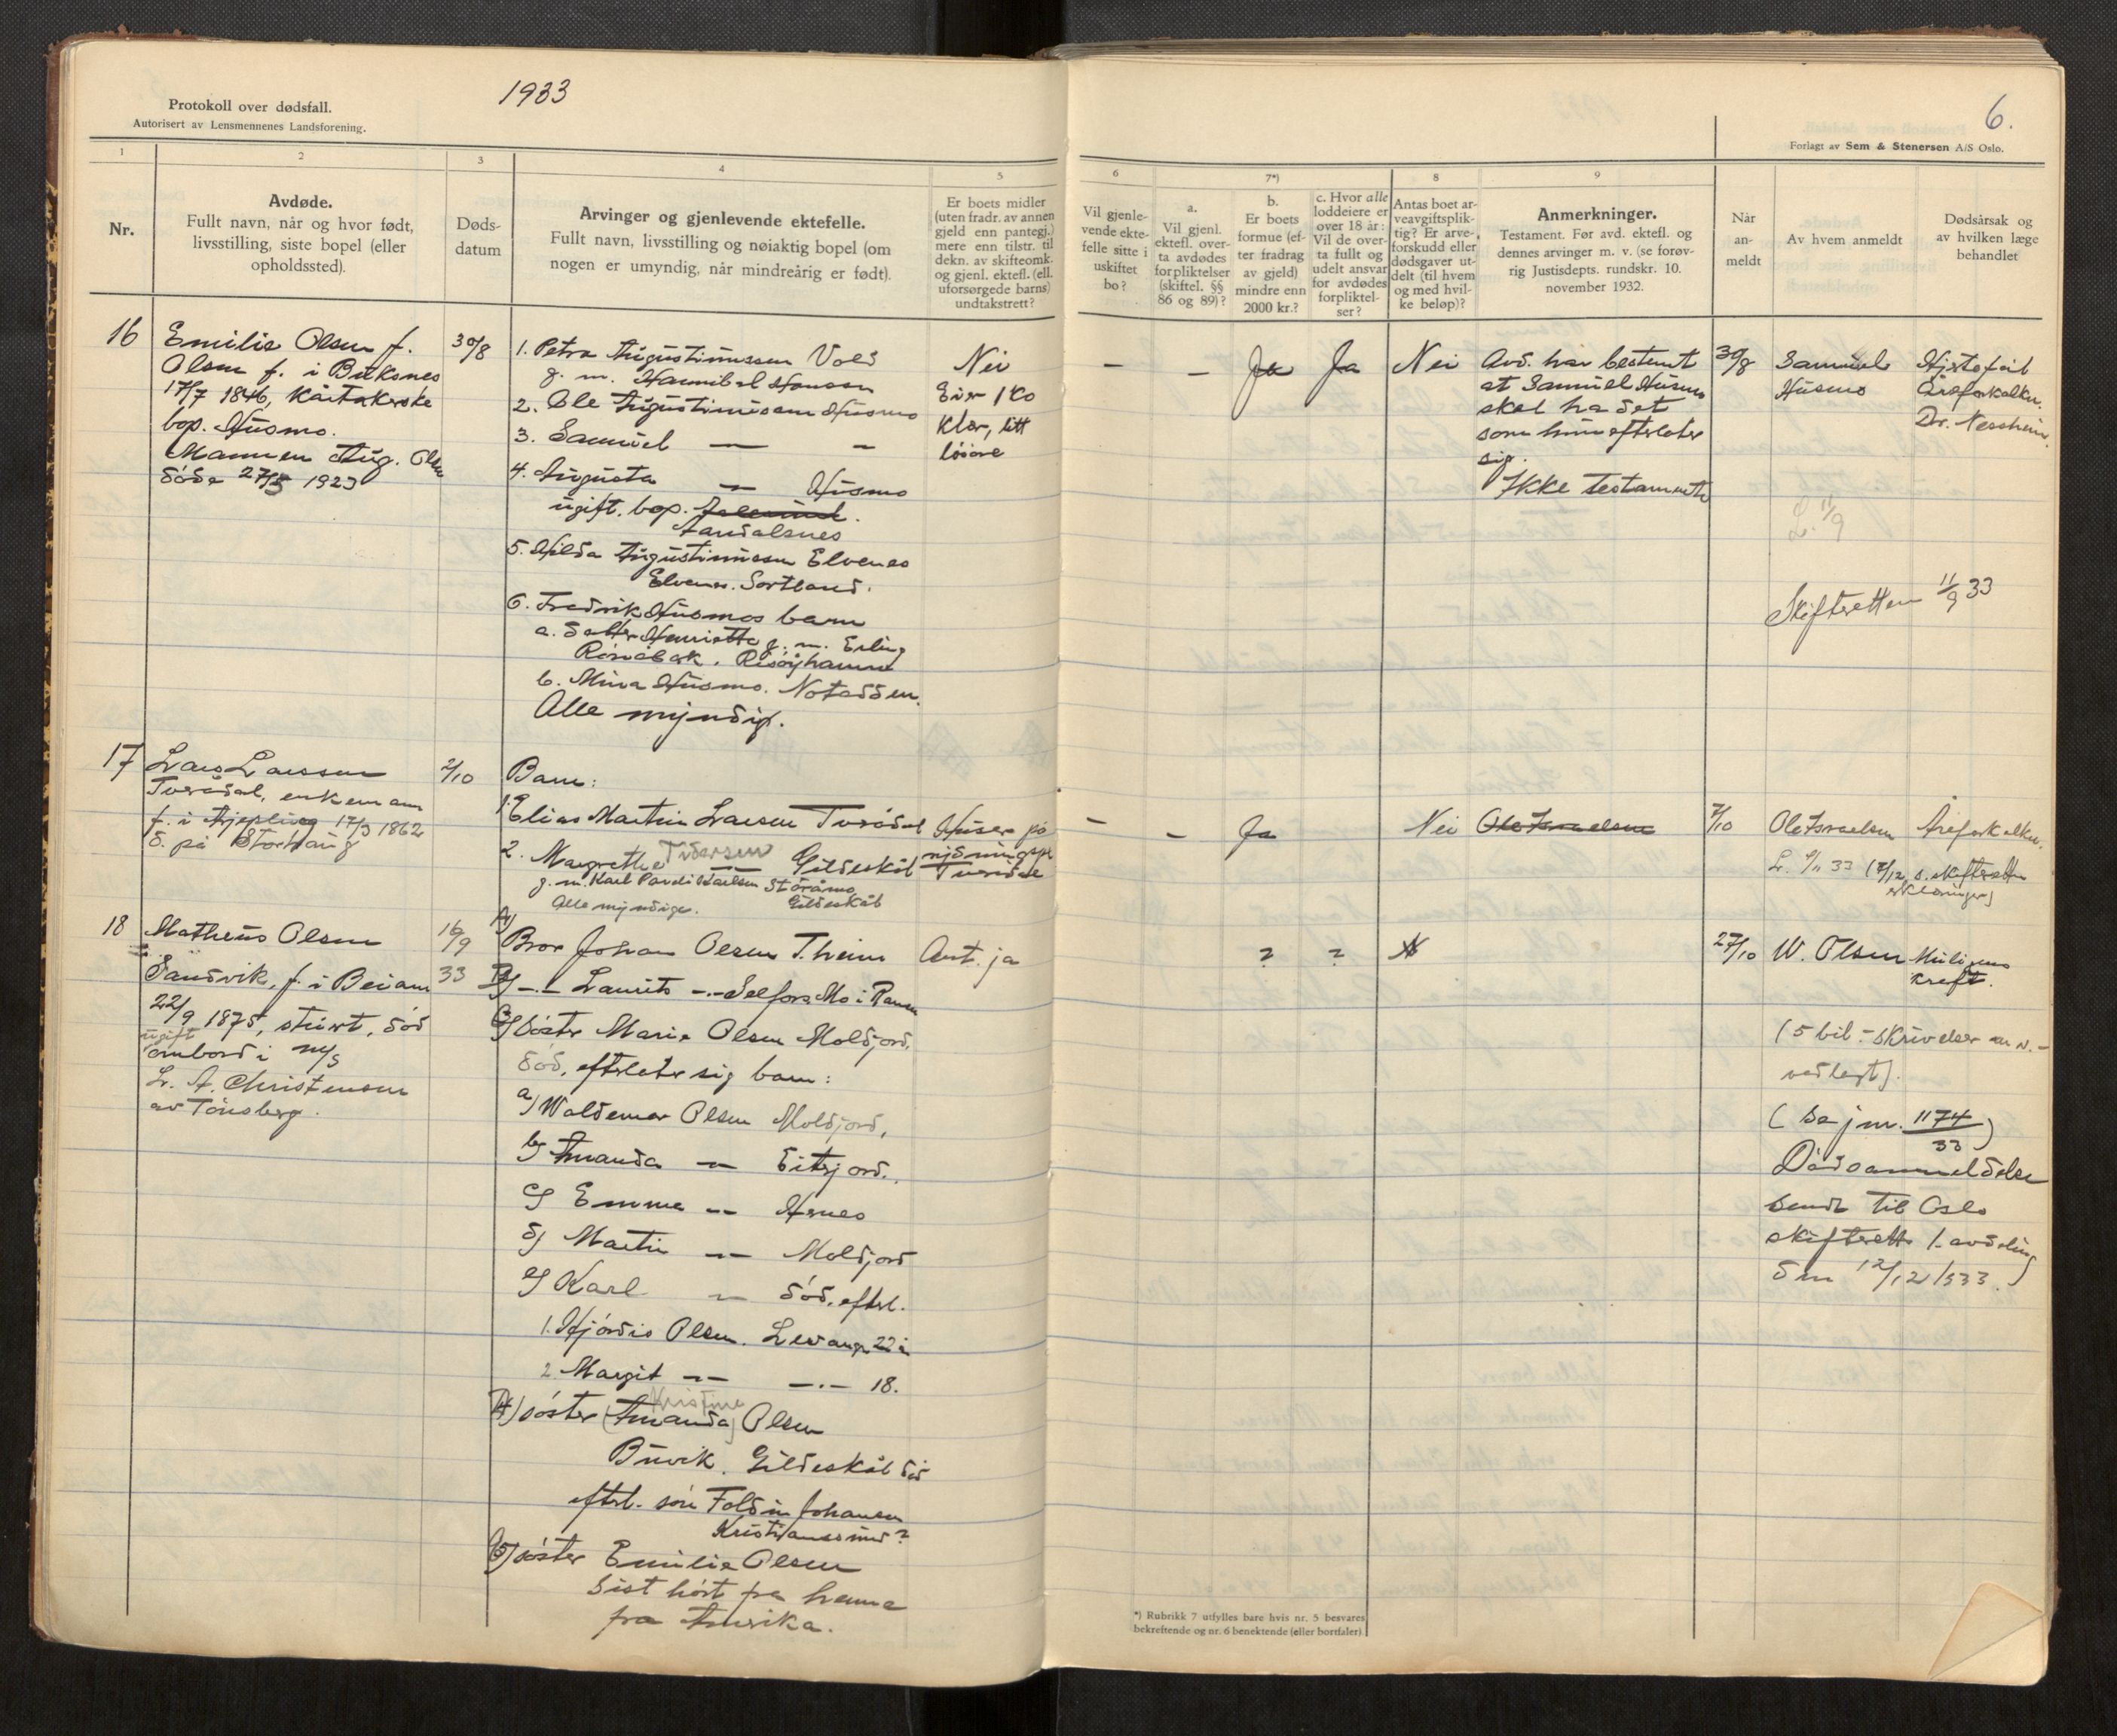 Protokoll over dødsfall.
Autorisert av Lensmennenes Landsforening.
1933
6.
Forlagt av Sem & Stenersen A/S Oslo.
1
2
3
4
5
6
7*)
8
9
Nr.
Avdøde.
Fullt navn, når og hvor født,
livsstilling, siste bopel (eller
opholdssted).
Døds-
datum
Arvinger og gjenlevende ektefelle.
Fullt navn, livsstilling og nøiaktig bopel (om
nogen er umyndig, når mindreårig er født).
Er boets midler
(uten fradr. av annen
gjeld enn pantegj.)
mere enn tilstr. til
dekn. av skifteomk.
og gjenl. ektefl. (ell.
uforsørgede barns)
undtakstrett?
Vil gjenle-
vende ekte-
felle sitte i
uskiftet
bo?
a.
Vil gjenl.
ektefl. over-
ta avdødes
forpliktelser
(skiftel. §§
86 og 89)?
b.
Er boets
formue (ef-
ter fradrag
av gjeld)
mindre enn
2000 kr.?
c. Hvor alle
loddeiere er
over 18 år:
Vil de over-
ta fullt og
udelt ansvar
for avdødes
forpliktel-
ser?
Antas boet ar-
veavgiftsplik-
tig? Er arve-
forskudd eller
dødsgaver ut-
delt (til hvem
og med hvil-
ke beløp)?
Anmerkninger.
Testament. Før avd. ektefl. og
dennes arvinger m. v. (se forøv-
rig Justisdepts. rundskr. 10.
november 1932.
Når
an-
meldt
Av hvem anmeldt
Dødsårsak og
av hvilken læge
behandlet
16
Emilie Olsen f.
Olsen f. i Buksnes
17/7 1846, kårtakerske
bop. Husmo.
Mannen Aug. Olsen
døde 27/5 1923
30/8
1. Petra Augustinussen Vold
g. m. Hannibal Hansen
2. Ole Augustinussen Husmo
3. Samuel — –
4. Augusta — Husmo
ugift. bop.
Aandalsnes
5. Hilda Augustinussen Elvenes
Elvenes. Sortland.
6. Fredrik Husmos barn
a. datter Henriette g. m. Erling
Risøyhamn
b. Mina Husmo. Notodden.
Alle myndige.
Nei
Eier 1 ko
klær, litt
løsøre
–
–
Ja
Ja
Nei
Avd. har bestemt
at Samuel Husmo
skal ha det
som hun efterlater
sig.
Ikke testamente
30/8
Samuel
Husmo
Hjertefeil
Åreforkalkn.
Dr. Nessheim.
L. 11/9
Skifteretten 11/9 33
17
Lars Larssen
Tverådal, enkemann
f. i Arjeplaug 17/3 1862
d. på Storhaug
2/10
Barn:
1. Elias Martin Larsen Tverådal
2. Margrethe Tidersen — Gildeskål
g. m. Karl Paveli Karlsen Storåmo
Alle myndige. Gildeskål
Huser på
rydningspl
Tverådal
–
–
Ja
Nei
Ole Israelsen
7/10
Ole Israelsen
Åreforkalkn.
L. 4/11 33 (7/12 s. skifteretten
erklæringer)
18
Matheus Olsen
Sandvik, f. i Beiarn
22/9 1875, stuert, død
ugift
ombord i M/S
L. A. Christensen
av Tønsberg.
16/9
33
A)
Bror Johan Olsen T.heim
B) -.- Laurits -.- Selfors Mo i Rana
C) søster Marie Olsen Moldjord,
død, efterlater sig barn:
a) Waldemar Olsen Moldjord,
b) Amanda -- Eitejord.
c) Emma -- Arnes
d) Martin -- Moldjord
e) Karl -- død, efterl.
1. Hjørdis Olsen. Levanger 22 år
2. Margit -- -.- 18.
Kristine
4) søster (Amanda) Olsen
Buvik. Gildeskål død
efterl. sønn Foldin Johansen
Kristiansund?
5) søster Emilie Olsen
sist hørt fra henne
fra Amerika.
Ant. ja
?
?
27/10
W. Olsen
Muligens
kreft.
(5 bil. – skrivelser m. v. –
vedlagt).
(se jnr. 1174/33)
Dødsanmeldelse
sendt til Oslo
skifterett 1. avdeling
den 12/12 1933.)
*) Rubrikk 7 utfylles bare hvis nr. 5 besvares
bekreftende og nr. 6 benektende (eller bortfaler).